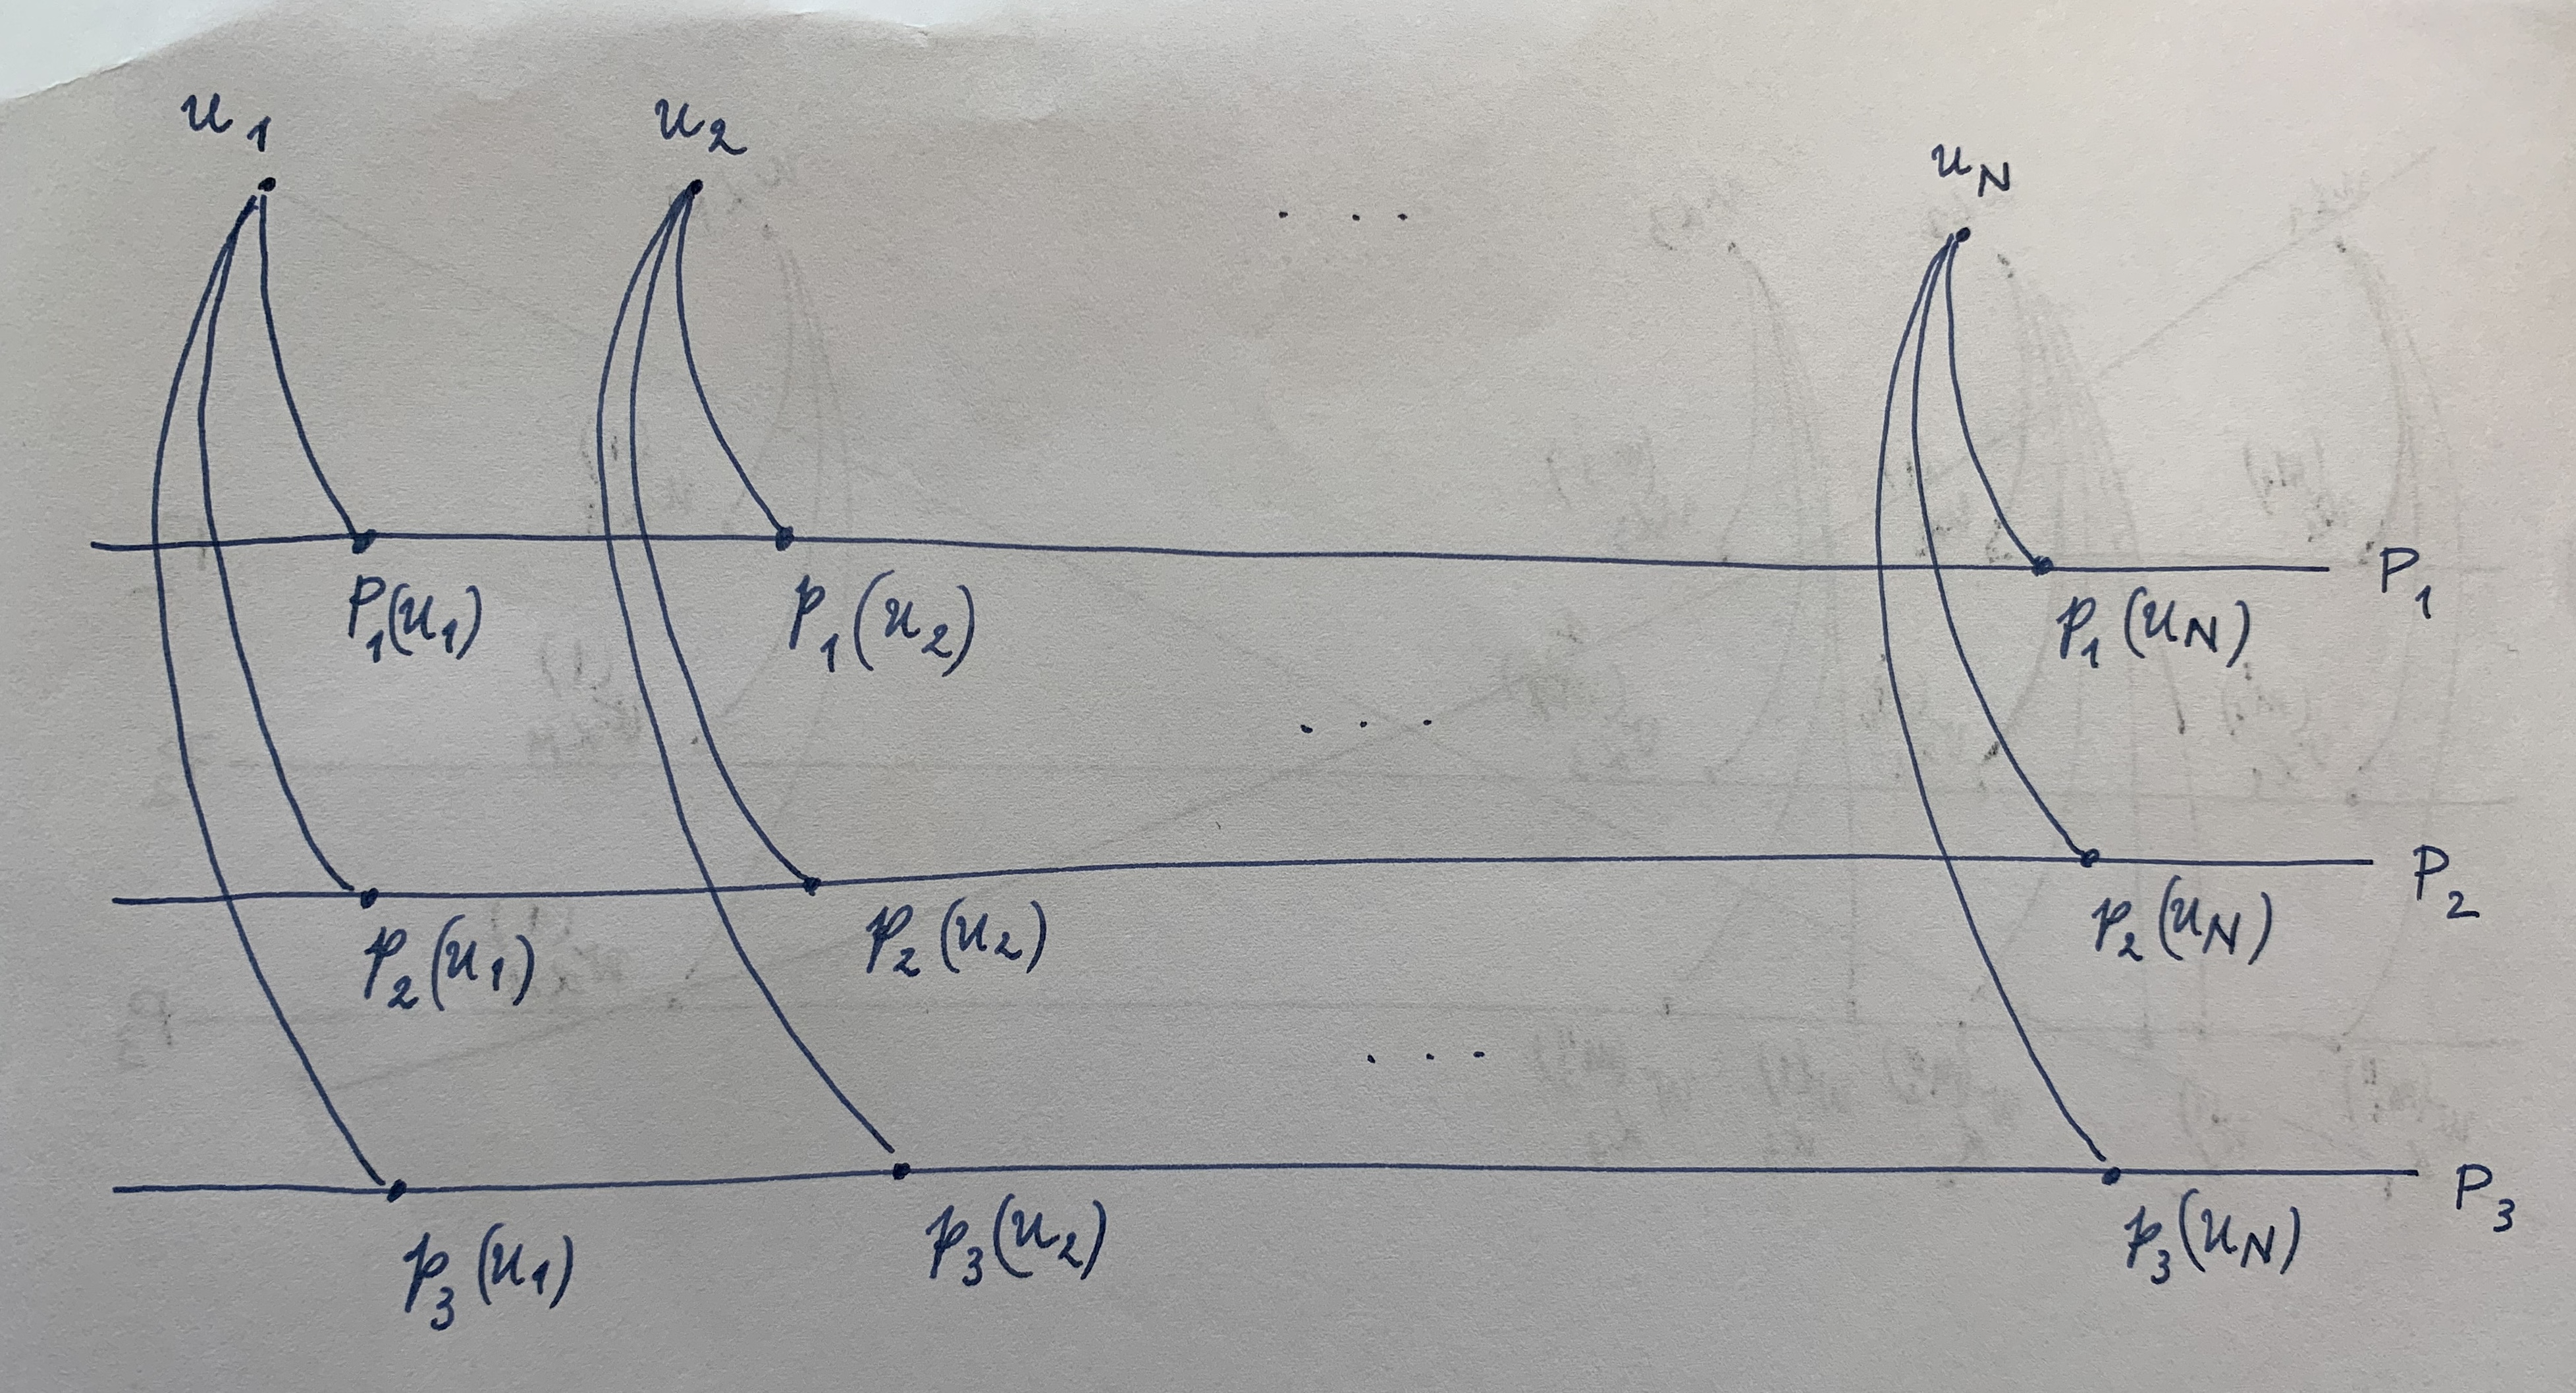 u₁ u₂ . . . u_N
P₁
p₁(u₁) p₁(u₂) p₁(u_N)
. . .
P₂
p₂(u₁) p₂(u₂) p₂(u_N)
. . .
P₃
p₃(u₁) p₃(u₂) p₃(u_N)